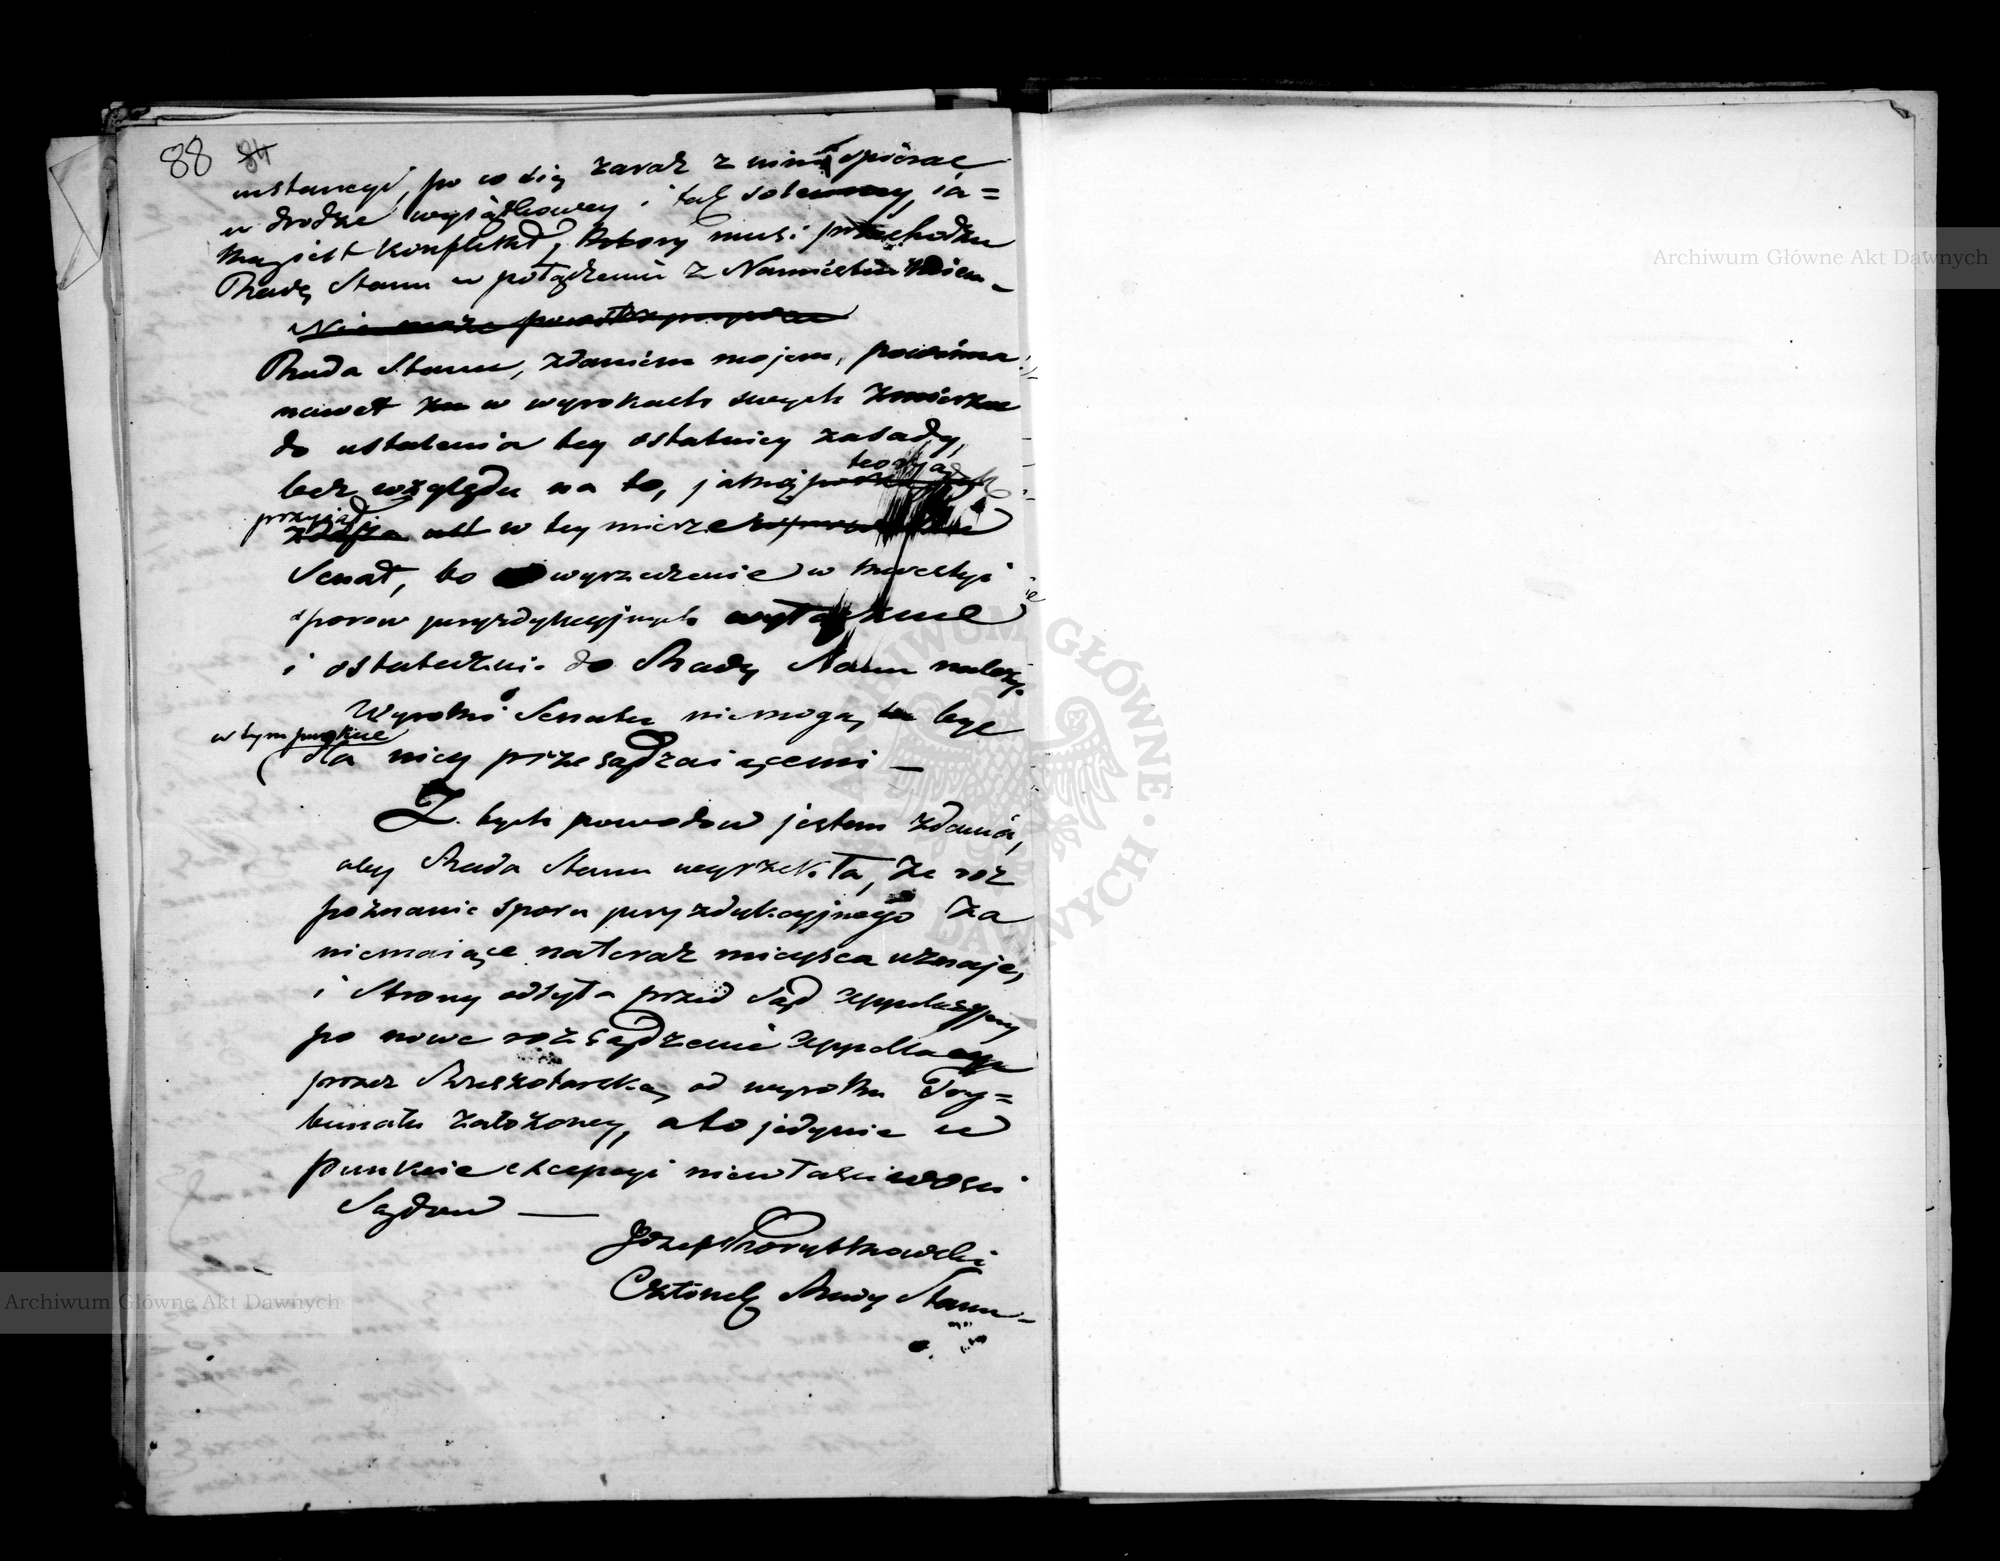 88 84
instancyi, po co się zaraz z nimi spierać
w drodze wyjątkowey i tak solenney, ia=
ką jest konflikt, który musi przechodzić
Radę Stanu w połączeniu z Namiestnikiem –
Rada Stanu, zdaniem mojem, powinna
nawet w wyrokach swych zmierzać
do ustalenia tey ostatniey zasady,
teoryą
bez względu na to, jakiej
przyjął
w tey mierze
Senat, bo wyrzeczenie w kwestyi
sporow juryzdykcyjnych wyłącznie
i ostatecznie do Rady Stanu należy.
Wyroki Senatu niemogą być
w tym punkcie
dla niey przesądzaiącemi —
Z tych powodow jestem zdania,
aby Rada Stanu wyrzekła, że roz
poznanie sporu juryzdykcyjnego za
niemaiące nateraz mieysca uznaje,
i Strony odsyła przed Sąd Appellacyjny
po nowe rozsądzenie Appellacyi
przez Rzeszotarską od wyroku Try=
bunału założoney, a to jedynie w
punkcie excepcyi niewłaściwosci
Sądow —
Józef Korytkowski
Członek Rady Stanu –
Archiwum Główne Akt Dawnych
ARCHIWUM GŁÓWNE AKT DAWNYCH
Archiwum Główne Akt Dawnych